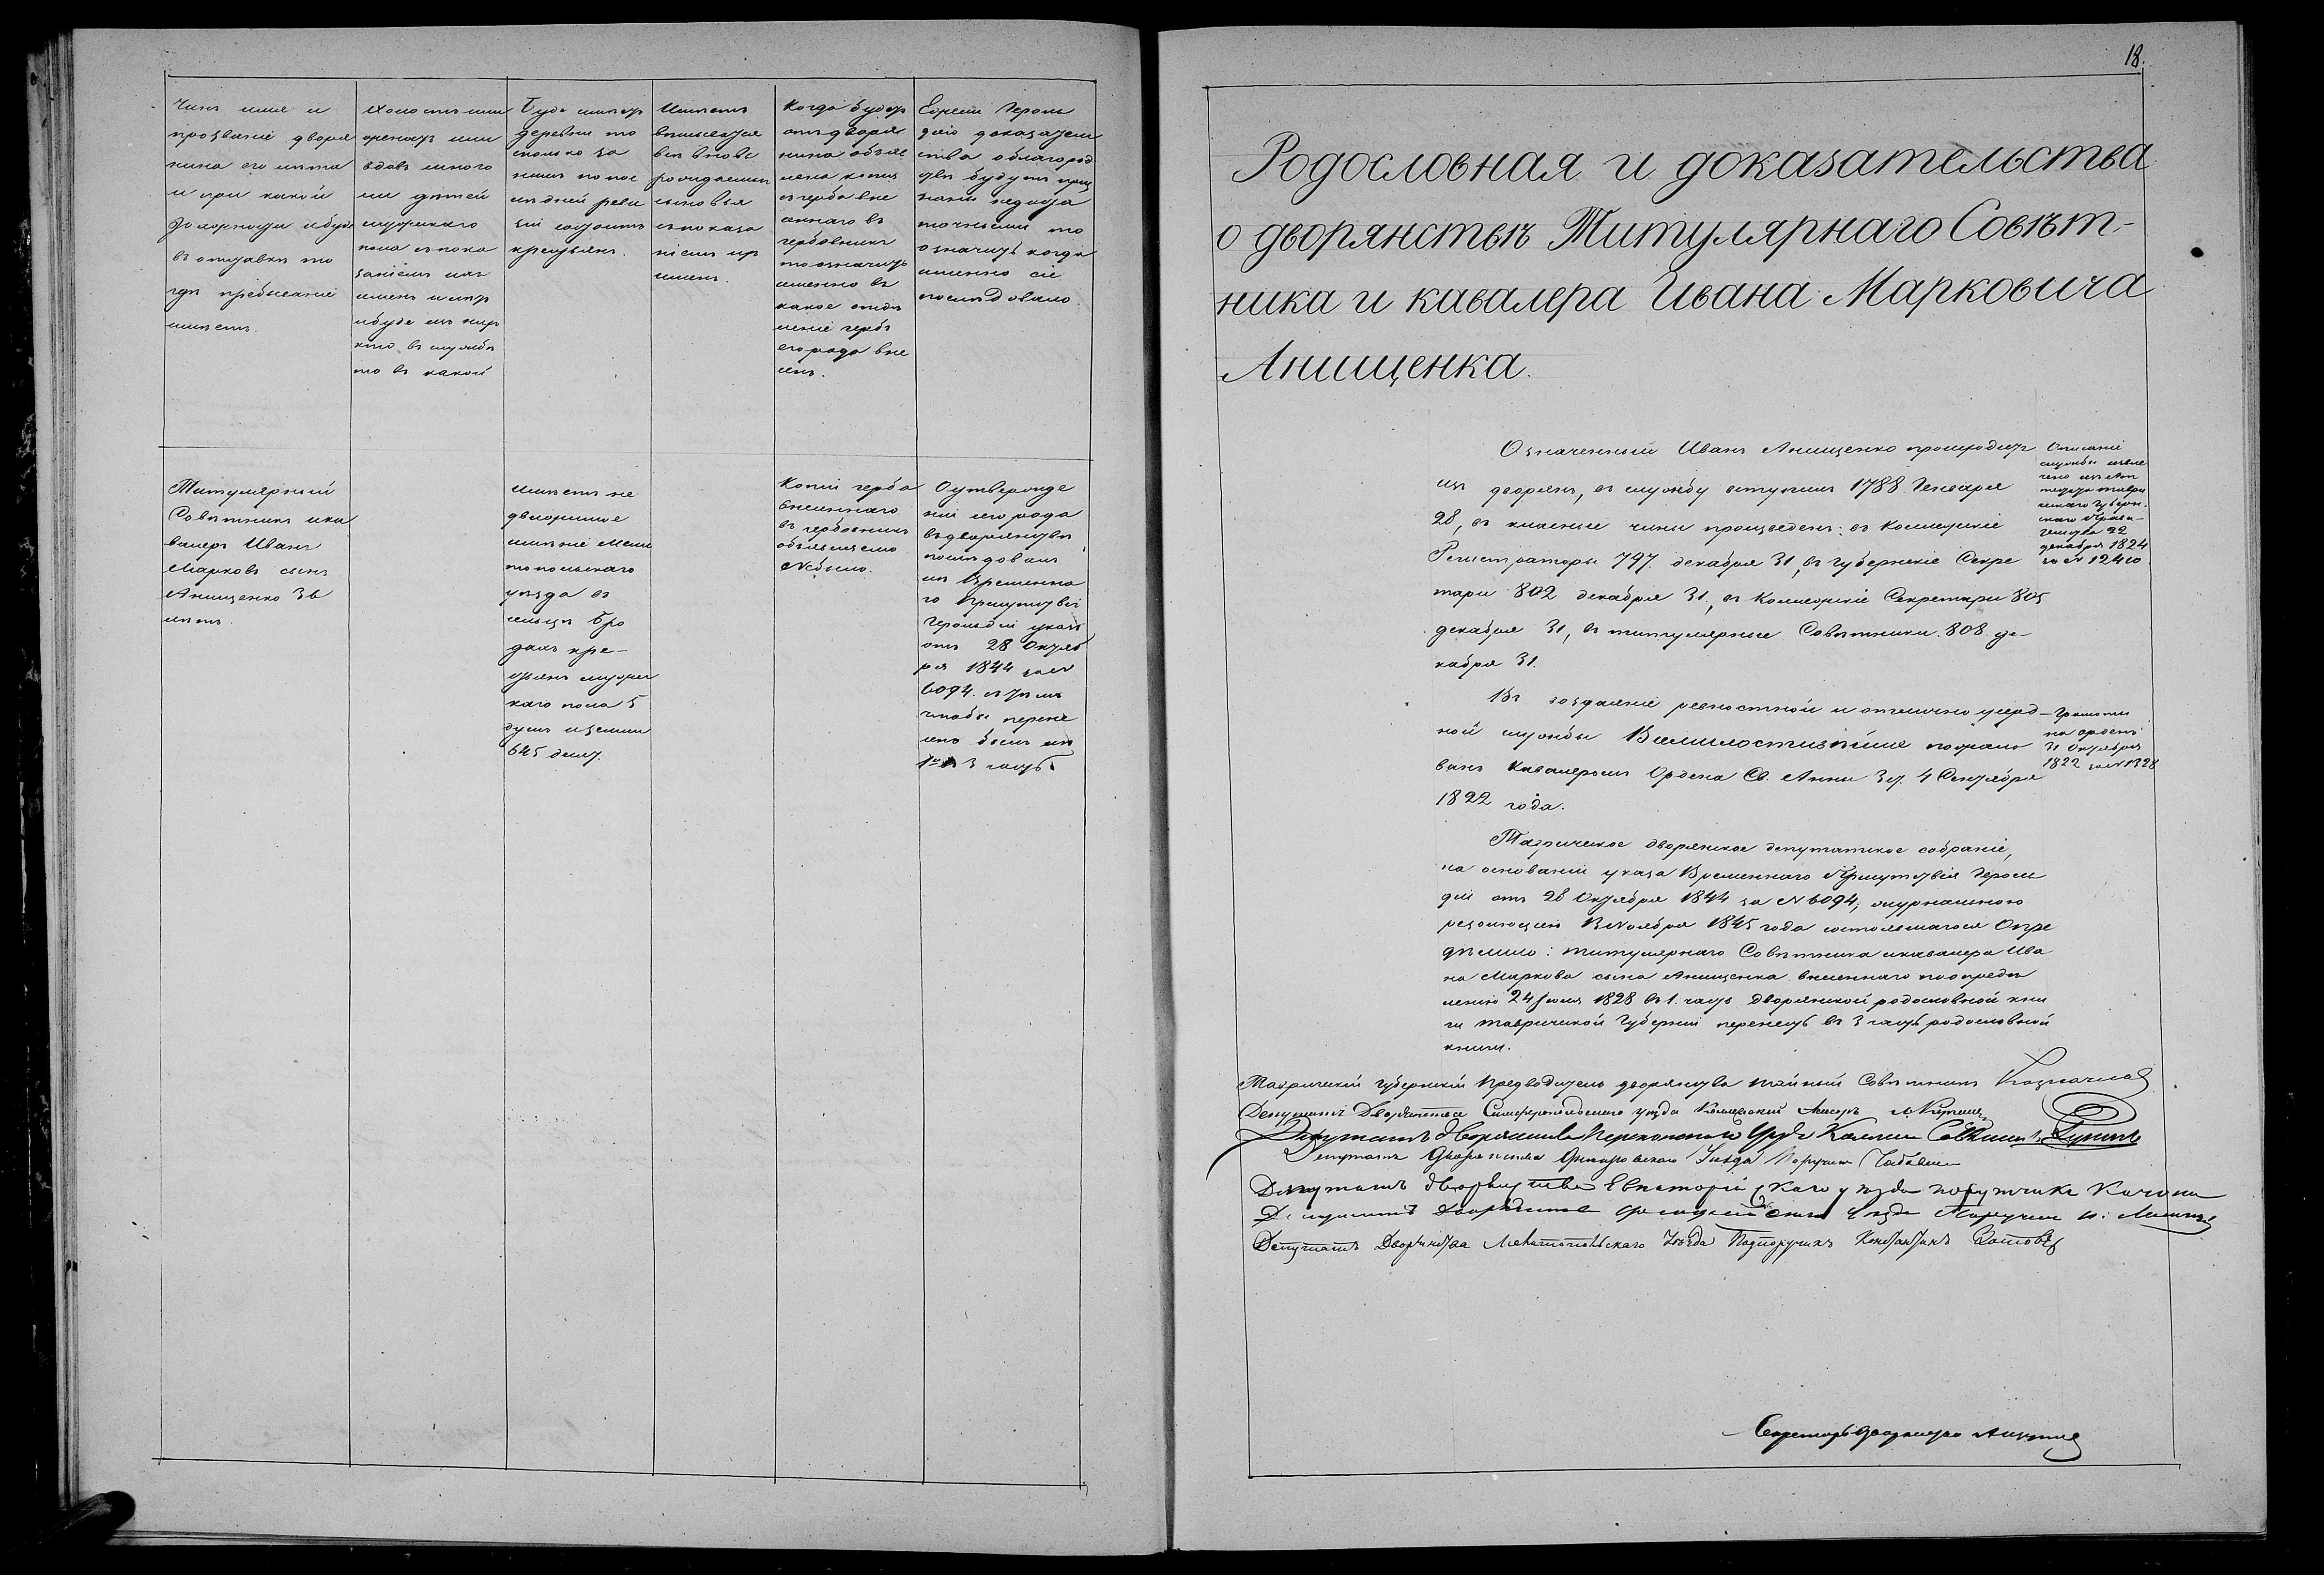 Чинъ имя и
прозваніе дворя
нина его лѣта
и при какой
должности и буде
въ отставкѣ то
гдѣ пребываніе
имѣетъ.
Холостъ или
женатъ или
вдовъ много
ли дѣтей
мужескаго
пола съ пока
заніемъ ихъ
именъ и лѣтъ
и буде изъ нихъ
кто въ службѣ
то въ какой
Буде имѣетъ
деревни то
сколько за
нимъ по пос
лѣдней реви
зіи состоитъ
крестьянъ.
Имѣетъ
вписаться
всѣ вновь
рождаемые
сыновья
съ показа
ніемъ ихъ
именъ.
Когда будетъ
отъ дворя
нина объяв
лена копія
съ герба вне
сеннаго въ
гербовникъ
то означить
именно въ
какое отдѣ
леніе гербъ
его рода вне
сенъ.
Ежели Героль
діею доказатель
ства о благород
ствѣ будутъ приз
наны недоста
точными то
означить когда
именно сіе
послѣдовало.
Титулярный
Совѣтникъ и ка
валеръ Иванъ
Марковъ сынъ
Анищенко 36
лѣтъ.
имѣетъ не
движимое
имѣніе Мели
топольскаго
уѣзда въ
сельцѣ Бро
дахъ кре-
стьянъ мужес
каго пола 5
душъ и земли
645 десят.
Копіи герба
внесеннаго
въ гербовникъ
объявляемо
не было.
О утвержде
ніи его рода
въ дворянствѣ
послѣдовалъ
изъ Временна
го присутствія
Герольдіи указъ
отъ 28 Октяб
ря 1844 за №
6094. съ тѣмъ
чтобы перене
сенъ былъ изъ
1й въ 3 часть.
18.
Родословная и доказательства
о дворянствѣ Титулярнаго Совѣт-
ника и кавалера Ивана Марковича
Анищенка.
Означенный Иванъ Анищенко происходитъ
изъ дворянъ, въ службу вступилъ 1788 Генваря
28, въ классные чины произведенъ: въ Коллежскіе
Регистраторы 797 декабря 31, въ Губернскіе Секре
тари 802 декабря 31, въ Коллежскіе Секретари 805
декабря 31, въ титулярные Совѣтники 808 де-
кабря 31.
Описаніе
службы извле
чено изъ атт
естата Таври
ческаго Губерн-
скаго Прави-
тельства 22
декабря 1824
за № 12410
Въ воздаяніе ревностной и отлично усерд-
ной службы Всемилостивѣйше пожало
ванъ Кавалеромъ Ордена Св. Анны 3 ст. 4 Сентября
1822 года.
Грамоты
на орденъ
31 Октября
1822 за № 1328
Таврическое дворянское депутатское собраніе,
на основаніи указа Временнаго Присутствія Героль
діи отъ 28 Октября 1844 за № 6094, журнальною
резолюціею 13 Ноября 1845 года состоявшагося Опре
дѣлило: титулярнаго Совѣтника и кавалера Ива
на Маркова сына Анищенка внесеннаго по опредѣ
ленію 24 Іюля 1828 въ 1 часть Дворянской родословной кни
ги Таврической Губерніи перенесть въ 3 часть родословной
книги.
Таврическій Губернскій Предводитель дворянства тайный Совѣтникъ Казначеевъ
Депутатъ Дворянства Симферопольскаго уѣзда Коллежскій
Депутатъ дворянства Перекопскаго Уѣзда Коллежс. Совѣтникъ
Депутатъ Дворянства Днѣпровскаго Уѣзда Поручикъ
Депутатъ дворянства Евпаторійскаго уѣзда порутчикъ Качони
Депутатъ Дворянства Ѳеодосійскаго Уѣзда Поручикъ
Депутатъ Дворянства Мелитопольскаго Уѣзда Подпоручикъ Константинъ
Секретарь Дворянства